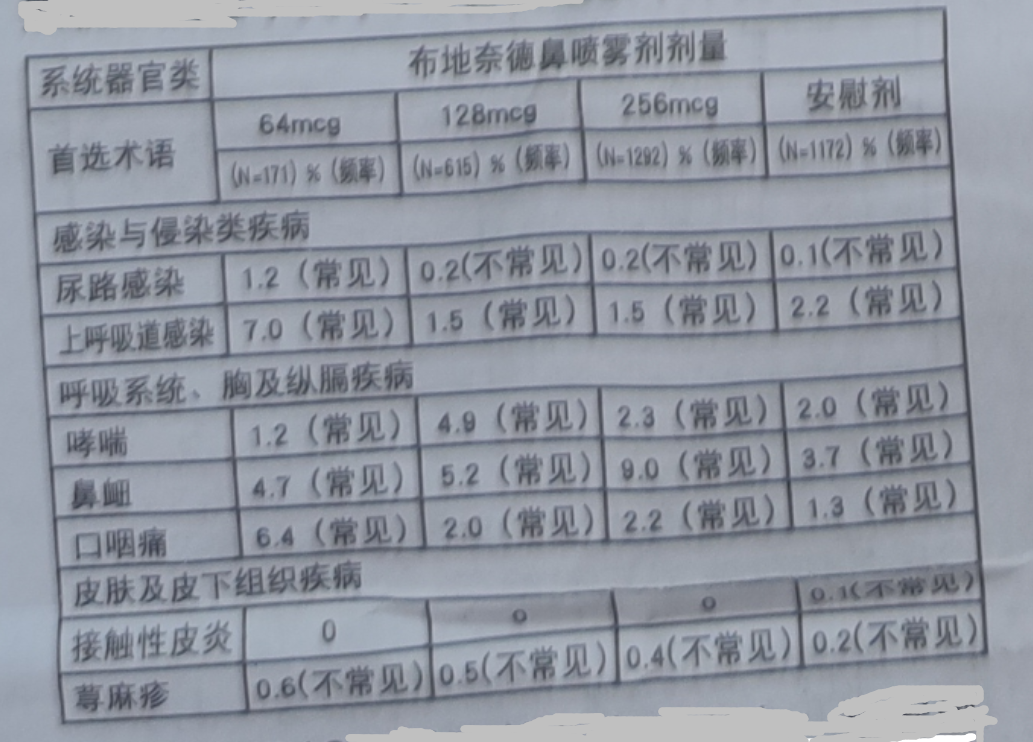 系统器官类 布地奈德鼻喷雾剂剂量
首选术语 64mcg 128mcg 256mcg 安慰剂
(N=171) % (频率) (N=615) % (频率) (N=1292) % (频率) (N=1172) % (频率)
感染与侵染类疾病
尿路感染 1.2 (常见) 0.2(不常见) 0.2(不常见) 0.1(不常见)
上呼吸道感染 7.0 (常见) 1.5 (常见) 1.5 (常见) 2.2 (常见)
呼吸系统、胸及纵膈疾病
哮喘 1.2 (常见) 4.9 (常见) 2.3 (常见) 2.0 (常见)
鼻衄 4.7 (常见) 5.2 (常见) 9.0 (常见) 3.7 (常见)
口咽痛 6.4 (常见) 2.0 (常见) 2.2 (常见) 1.3 (常见)
皮肤及皮下组织疾病
接触性皮炎 0 0 0 0.1(不常见)
荨麻疹 0.6(不常见) 0.5(不常见) 0.4(不常见) 0.2(不常见)